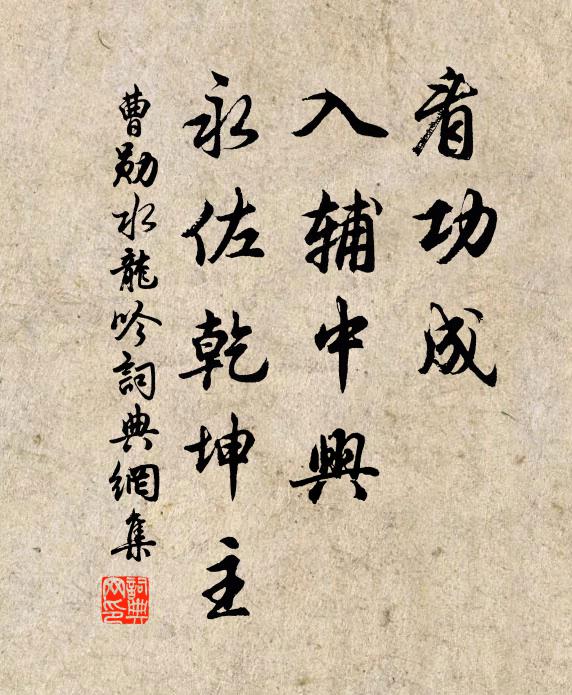 看功成
入辅中興
永佐乾坤主
曹勛水龍吟詞典網集
詞典
网印